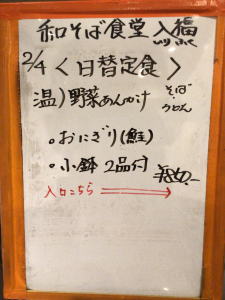 和そば食堂 入福
2/4 〈日替定食〉
温)野菜あんかけ そば・うどん
。おにぎり(鮭)
。小鉢 2品付 ¥840.-
入口こちら